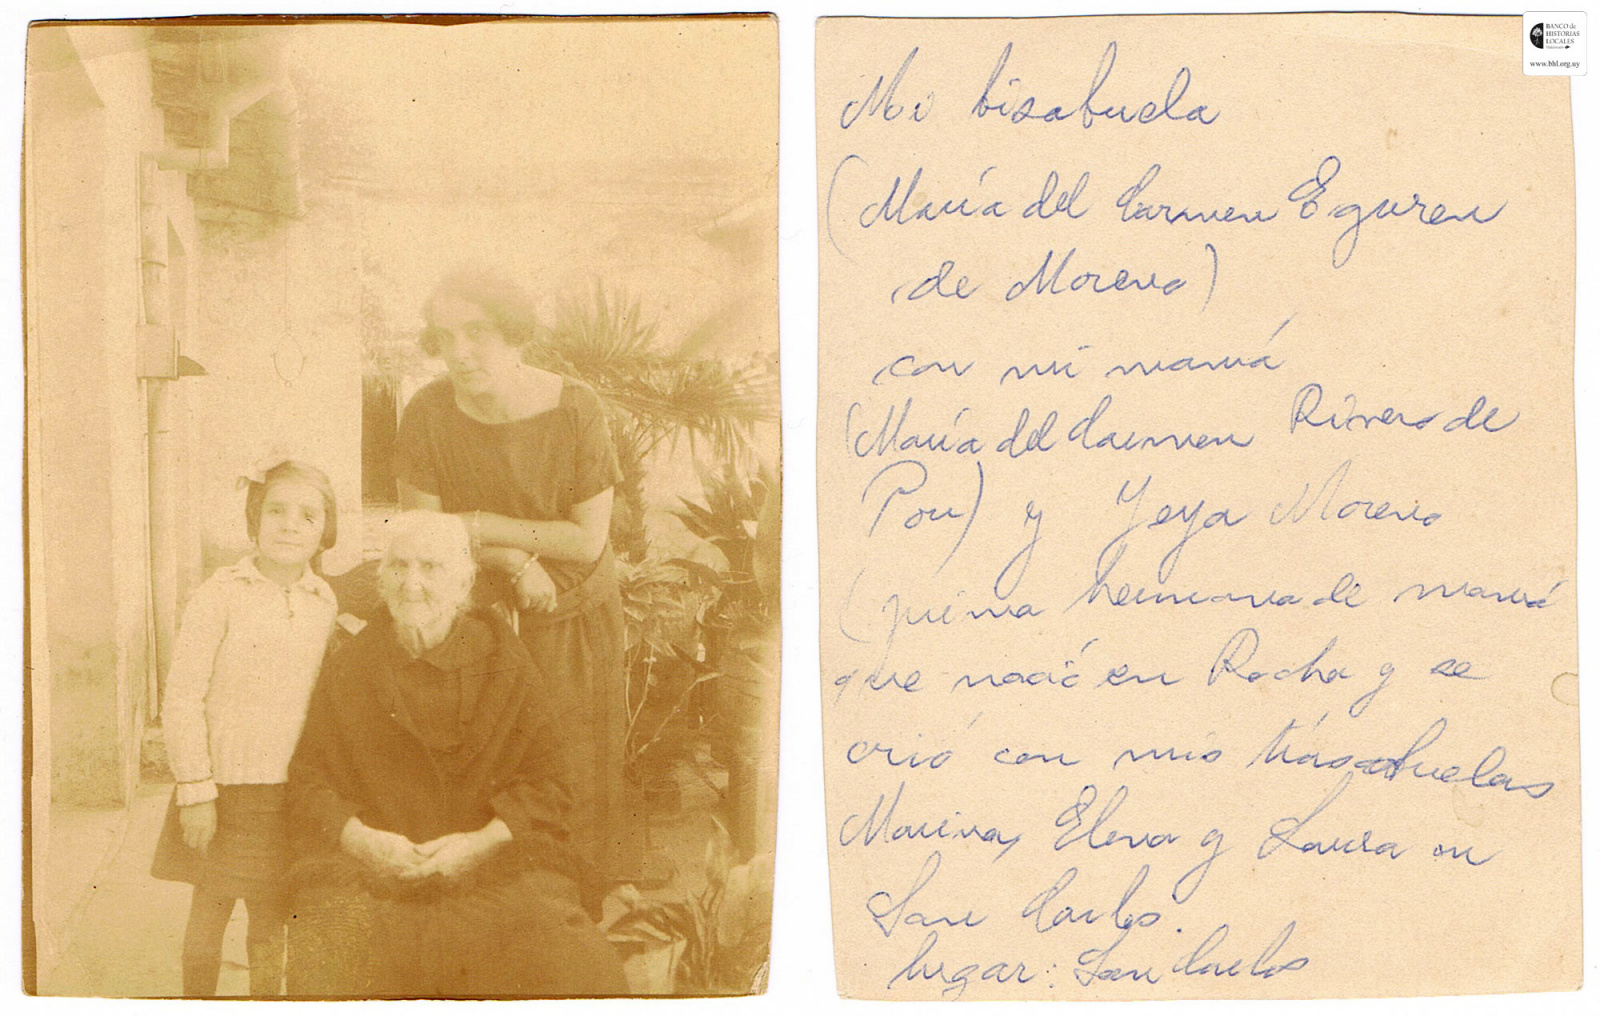 Mi bisabuela
(María del Carmen Eguren
de Moreno)
con mi mamá
(María del Carmen Rivero de
Pou) y Yeya Moreno
(prima hermana de mamá
que nació en Rocha y se
crió con mis tíasabuelas
Marina, Elena y Laura en
San Carlos.
lugar: San Carlos
BANCO de
HISTORIAS
LOCALES
www.bhl.org.uy